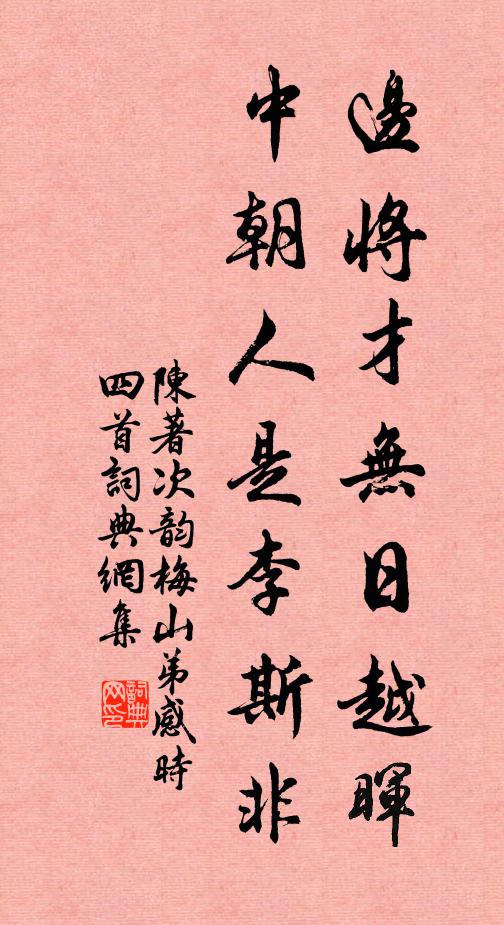 邊將才無日越暉
中朝人是李斯非
陳著次韵梅山弟感時
四首詞典網集
詞典网印